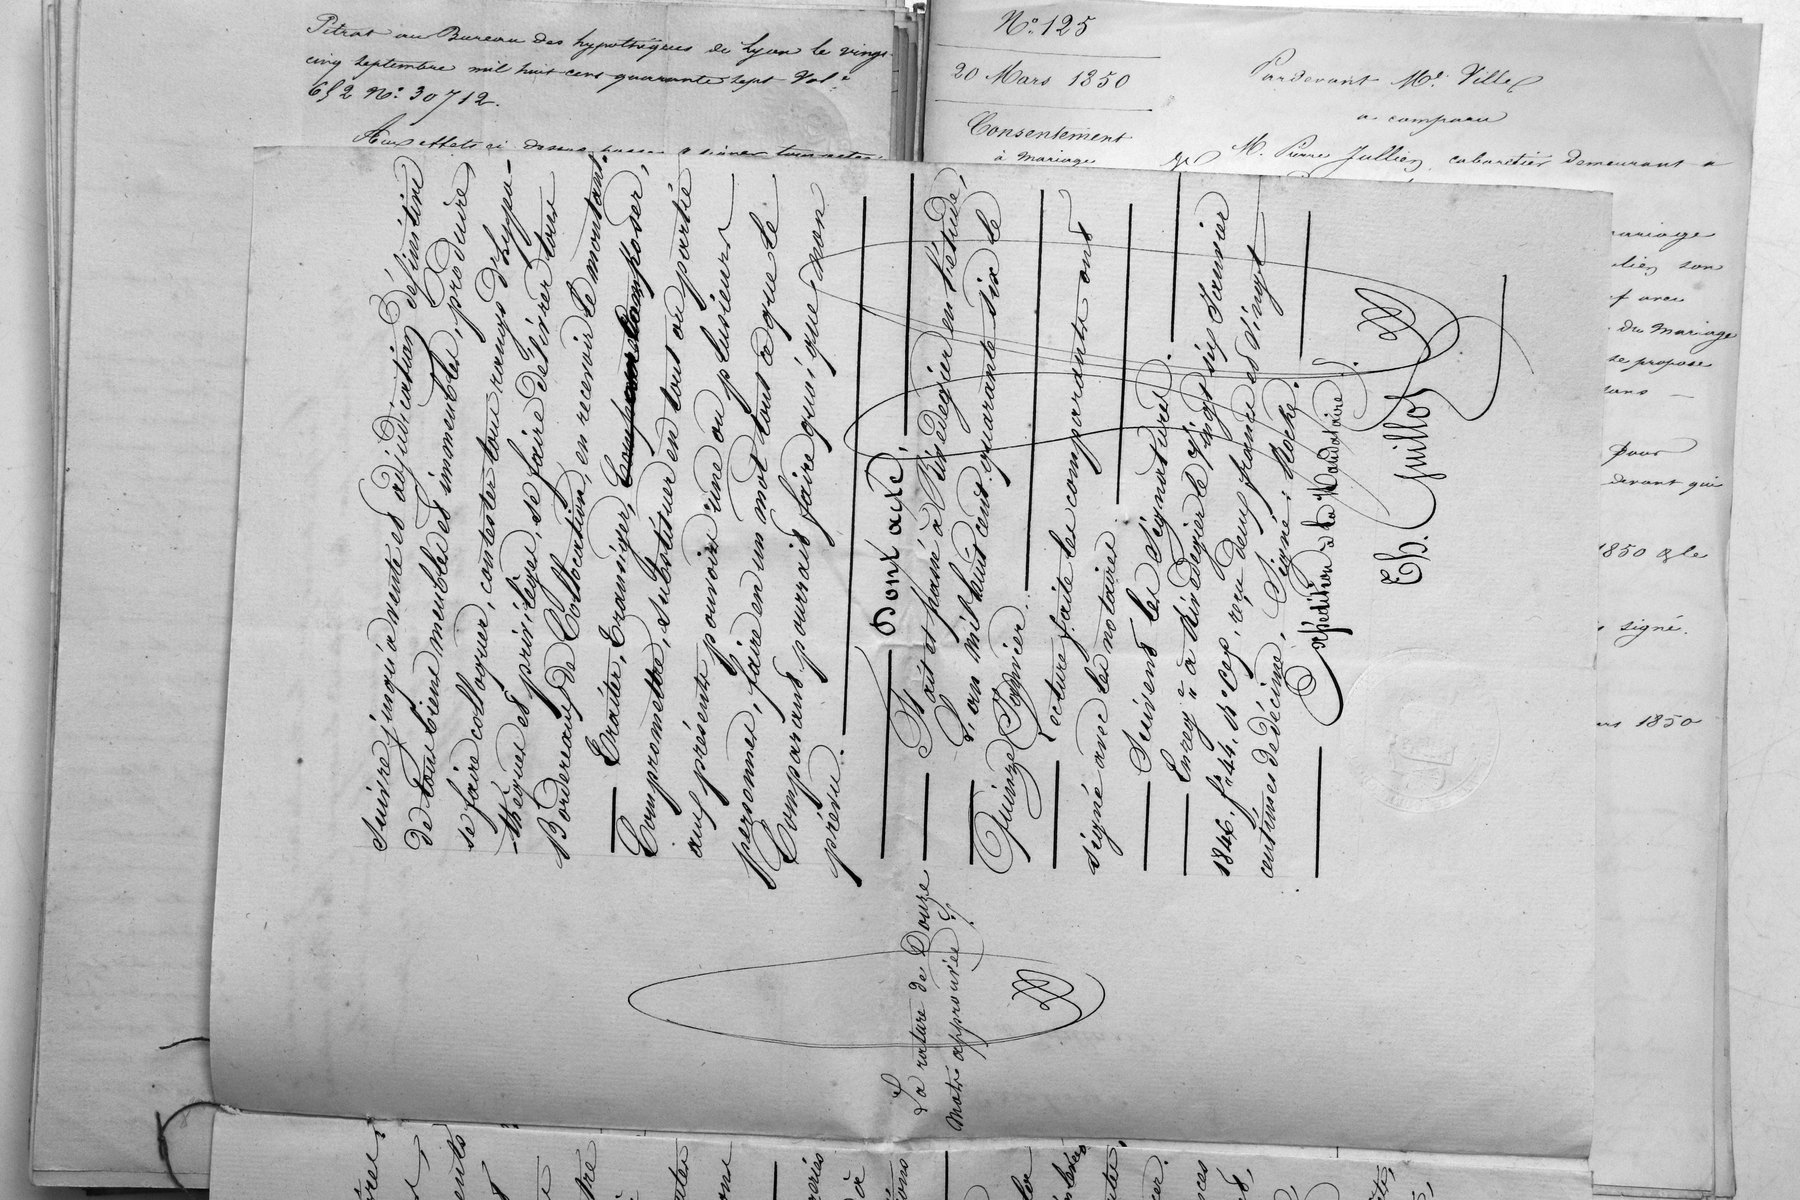 Pitrat au Bureau des hypothèques de Lyon le vingt
cinq septembre mil huit cent quarante sept Vol.
652 N° 30712.
Aux effets ci dessus passer & signer tous actes
N° 125
20 Mars 1850
Consentement
à mariage
Pardevant Me. Ville
a comparu
M. Pierre Jullien, cabaretier demeurant à
mariage
son
avec
du mariage
se propose
sans
pour
devant qui
1850 & le
signé.
1850
suivre jusqu'à vente et adjudication définitive
de tous biens meubles et immeubles, produire,
se faire colloquer, contester tous rangs d'hypo-
-thèques et privilèges, se faire délivrer tous
Bordereaux de Collocation, en recevoir le montant.
Traiter, Transiger, Composer,
Compromettre, substituer en tout ou partie
aux présents pouvoirs une ou plusieurs
personnes, faire en un mot tout ce que le
Comparant pourrait faire quoique non
prévu.
Dont acte,
Fait et passé à Rivedegier en l'étude,
L'an mil huit cent quarante six le
Quinze Janvier.
Lecture faite les comparants ont
signé avec les notaires.
Suivent les signatures.
Enreg. à Rivedegier le vingt six Janvier
1846. f° 44. R° Ce 7, reçu deux francs et vingt
centimes de décime, Signé: Roche.
Expédition à la Mandataire.
Th. Guillot
La rature de Douze
mots approuvée